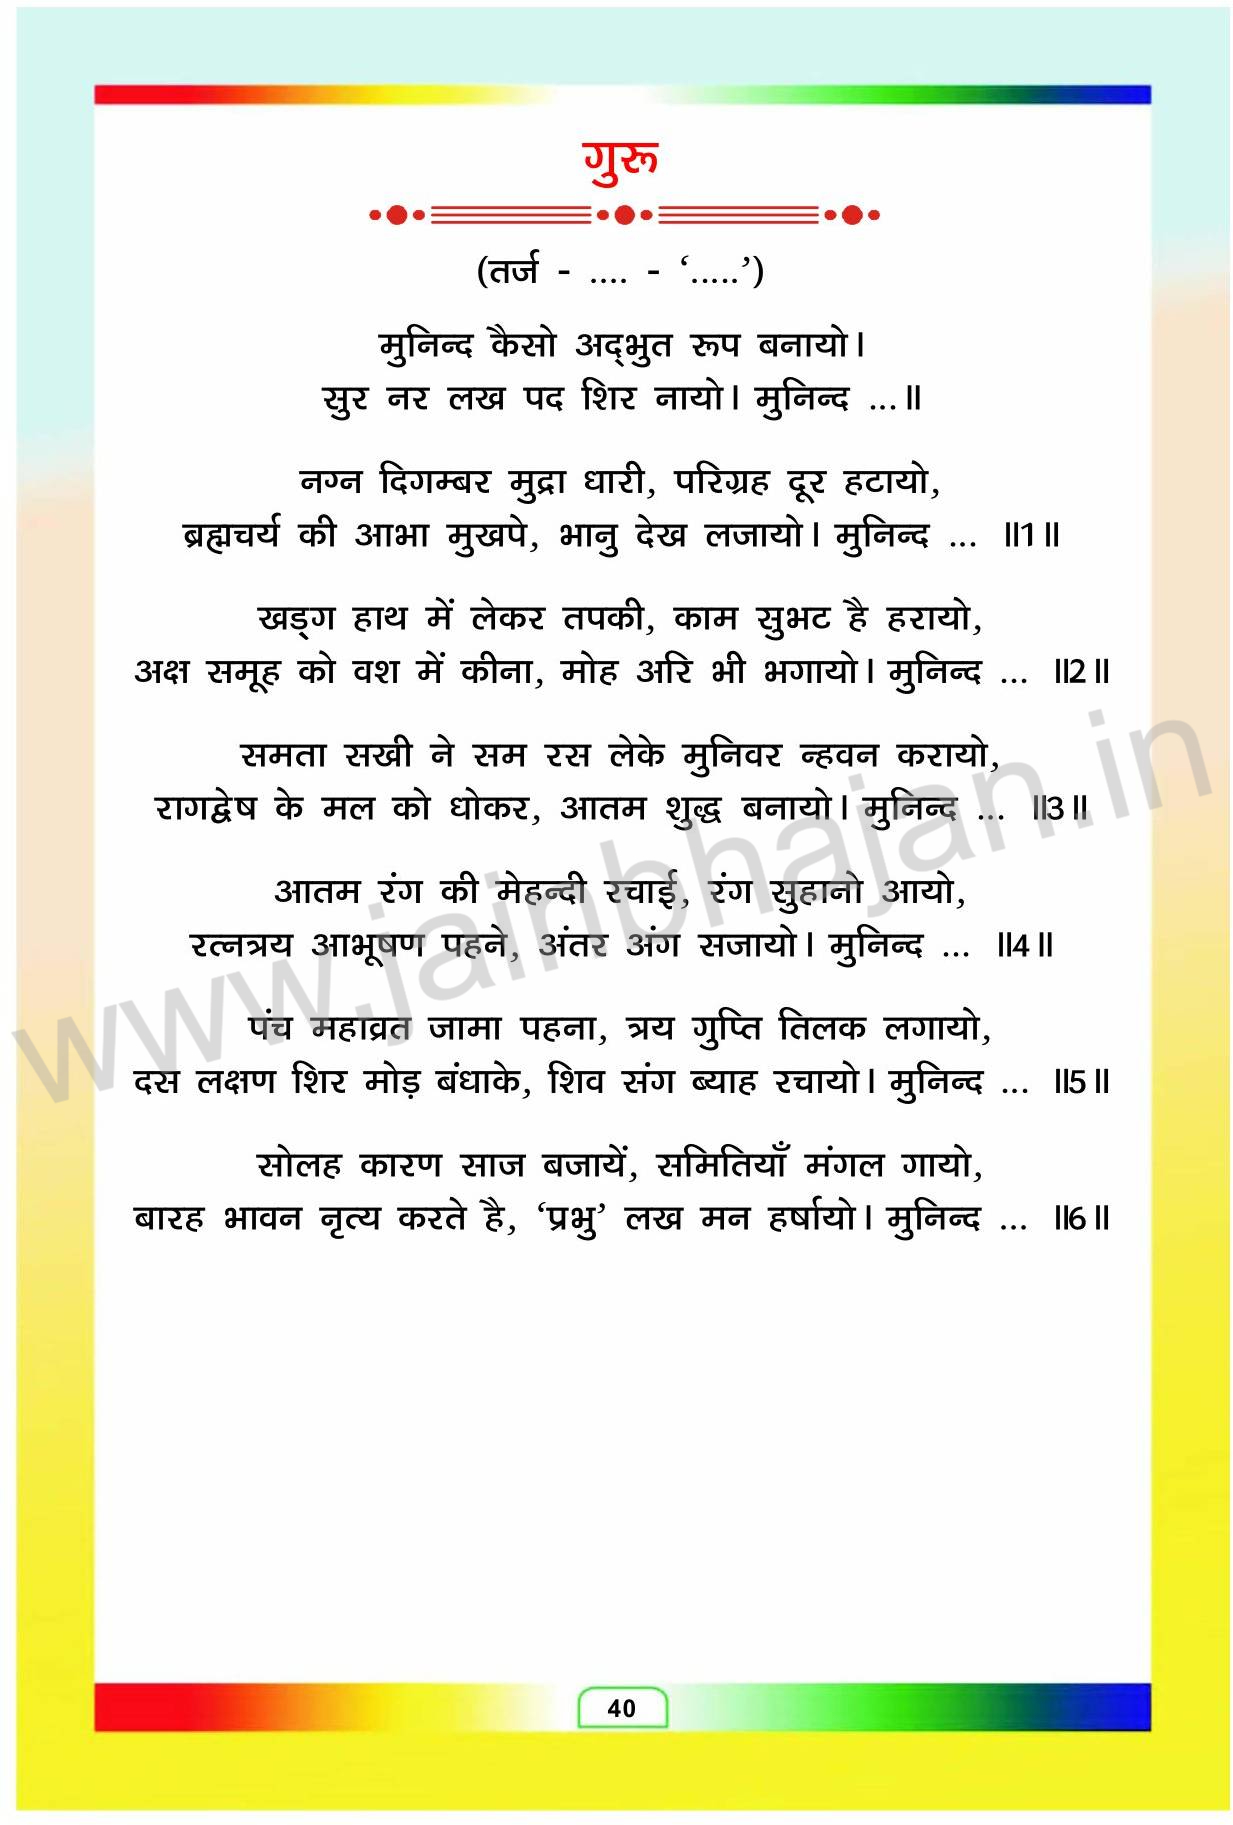 गुरू
(तर्ज - .... - ‘.....’)
मुनिन्द कैसो अद्‌भुत रूप बनायो।
सुर नर लख पद शिर नायो। मुनिन्द ...॥
नग्न दिगम्बर मुद्रा धारी, परिग्रह दूर हटायो,
ब्रह्मचर्य की आभा मुखपे, भानु देख लजायो। मुनिन्द ... ॥1॥
खड्‌ग हाथ में लेकर तपकी, काम सुभट है हरायो,
अक्ष समूह को वश में कीना, मोह अरि भी भगायो। मुनिन्द ... ॥2॥
समता सखी ने सम रस लेके मुनिवर न्हवन करायो,
रागद्वेष के मल को धोकर, आतम शुद्ध बनायो। मुनिन्द ... ॥3॥
आतम रंग की मेहन्दी रचाई, रंग सुहानो आयो,
रत्नत्रय आभूषण पहने, अंतर अंग सजायो। मुनिन्द ... ॥4॥
पंच महाव्रत जामा पहना, त्रय गुप्ति तिलक लगायो,
दस लक्षण शिर मोड़ बंधाके, शिव संग ब्याह रचायो। मुनिन्द ... ॥5॥
सोलह कारण साज बजायें, समितियाँ मंगल गायो,
बारह भावन नृत्य करते है, ‘प्रभु’ लख मन हर्षायो। मुनिन्द ... ॥6॥
www.jainbhajan.in
40